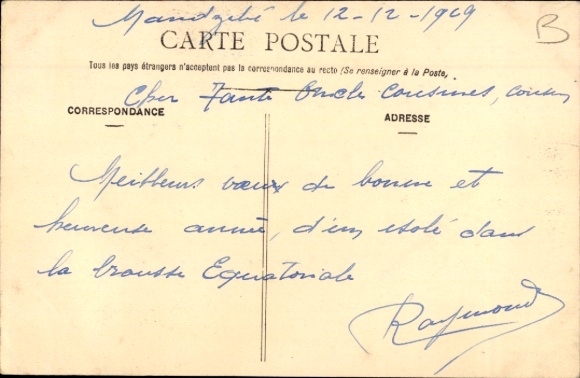 Mandzebé le 12-12-1949
B
CARTE POSTALE
Tous les pays étrangers n'acceptent pas la correspondance au recto (Se renseigner à la Poste)
Cher Tante Oncle Cousines, Cousin
CORRESPONDANCE
ADRESSE
Meilleurs vœux de bonne et
heureuse année, d'un isolé dans
la brousse Equatoriale
Raymond